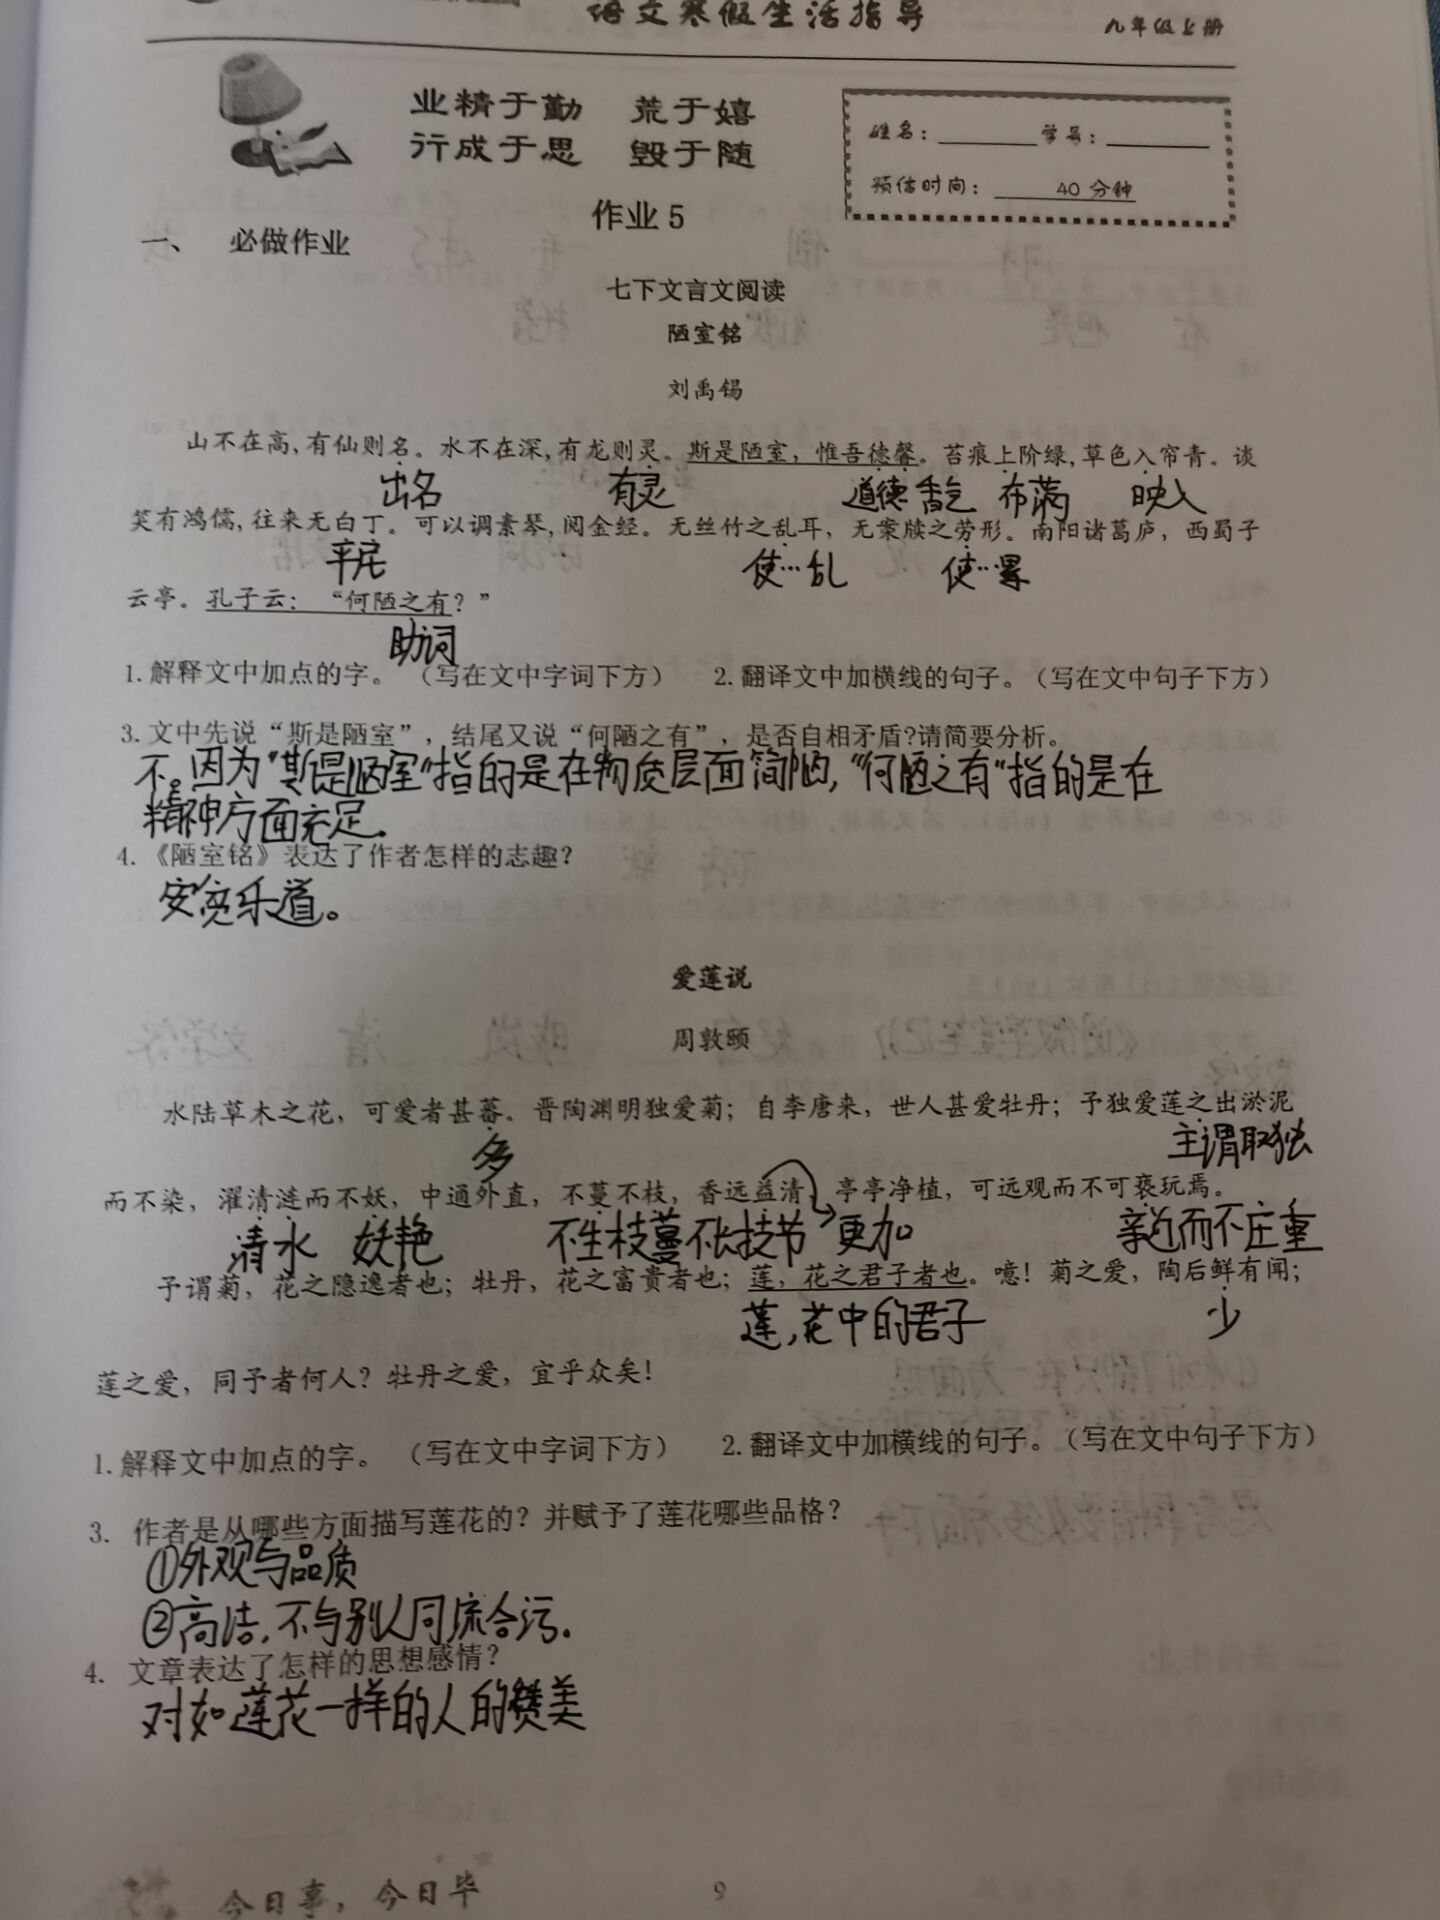 语文寒假生活指导
九年级上册
业精于勤 荒于嬉
行成于思 毁于随
姓名：
学号：
预估时间： 40 分钟
作业 5
一、 必做作业
七下文言文阅读
陋室铭
刘禹锡
山不在高,有仙则名。水不在深,有龙则灵。斯是陋室，惟吾德馨。苔痕上阶绿,草色入帘青。谈
出名 有灵 道德 香气 布满 映入
笑有鸿儒,往来无白丁。可以调素琴,阅金经。无丝竹之乱耳，无案牍之劳形。南阳诸葛庐，西蜀子
使…乱 使…累
云亭。孔子云：“何陋之有？”
助词
1.解释文中加点的字。（写在文中字词下方） 2.翻译文中加横线的句子。（写在文中句子下方）
3.文中先说“斯是陋室”，结尾又说“何陋之有”，是否自相矛盾?请简要分析。
不。因为“斯是陋室”指的是在物质层面简陋,“何陋之有”指的是在
精神方面充足.
4.《陋室铭》表达了作者怎样的志趣？
安贫乐道。
爱莲说
周敦颐
水陆草木之花，可爱者甚蕃。晋陶渊明独爱菊；自李唐来，世人甚爱牡丹；予独爱莲之出淤泥
多 主谓取独
而不染，濯清涟而不妖，中通外直，不蔓不枝，香远益清，亭亭净植，可远观而不可亵玩焉。
清水 妖艳 不生枝蔓不长枝节 更加 亲近而不庄重
予谓菊，花之隐逸者也；牡丹，花之富贵者也；莲，花之君子者也。噫！菊之爱，陶后鲜有闻；
莲,花中的君子 少
莲之爱，同予者何人？牡丹之爱，宜乎众矣！
1.解释文中加点的字。（写在文中字词下方） 2.翻译文中加横线的句子。（写在文中句子下方）
3. 作者是从哪些方面描写莲花的？并赋予了莲花哪些品格？
①外观与品质
②高洁,不与别人同流合污.
4. 文章表达了怎样的思想感情？
对如莲花一样的人的赞美
今日事，今日毕
9